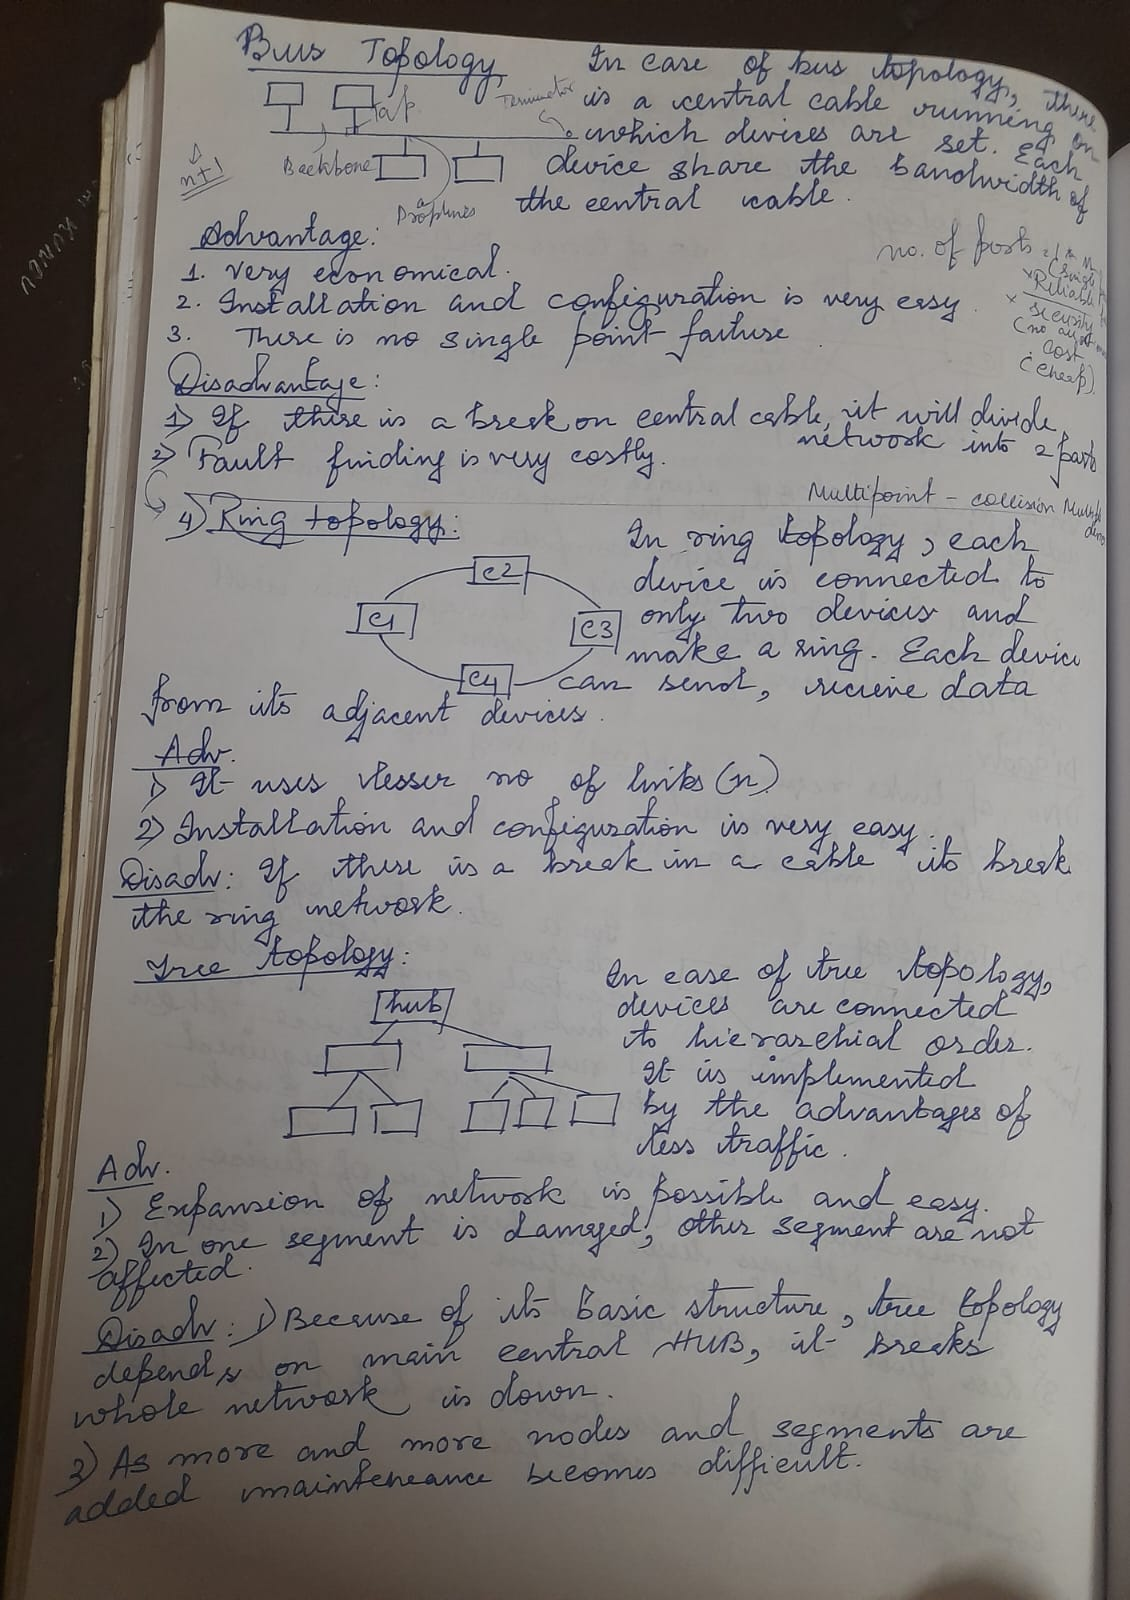 Bus Topology
In case of bus topology, there
is a central cable running on
which devices are set. Each
device share the bandwidth of
the central cable.
tap
Terminator
Backbone
Droplines
n+1
Advantage:
1. Very economical.
2. Installation and configuration is very easy
3. There is no single point failure
no. of ports
Reliable
security
cost
(cheap)
Disadvantage:
1) If there is a break on central cable, it will divide
network into 2 parts
2) Fault finding is very costly.
Multipoint - collision
4) Ring topology:
C2
C1
C3
C4
In ring topology, each
device is connected to
only two devices and
make a ring. Each device
can send, recieve data
from its adjacent devices.
Adv.
1) It uses lesser no of links (n)
2) Installation and configuration is very easy.
Disadv: If there is a break in a cable its break
the ring network.
Tree topology:
hub
In case of tree topology,
devices are connected
to hierarchial order.
It is implemented
by the advantages of
less traffic.
Adv.
1) Expansion of network is possible and easy.
2) In one segment is damaged, other segment are not
affected.
Disadv: 1) Because of its basic structure, tree topology
depends on main central HUB, it breaks
whole network is down.
2) As more and more nodes and segments are
added mainteneance becomes difficult.